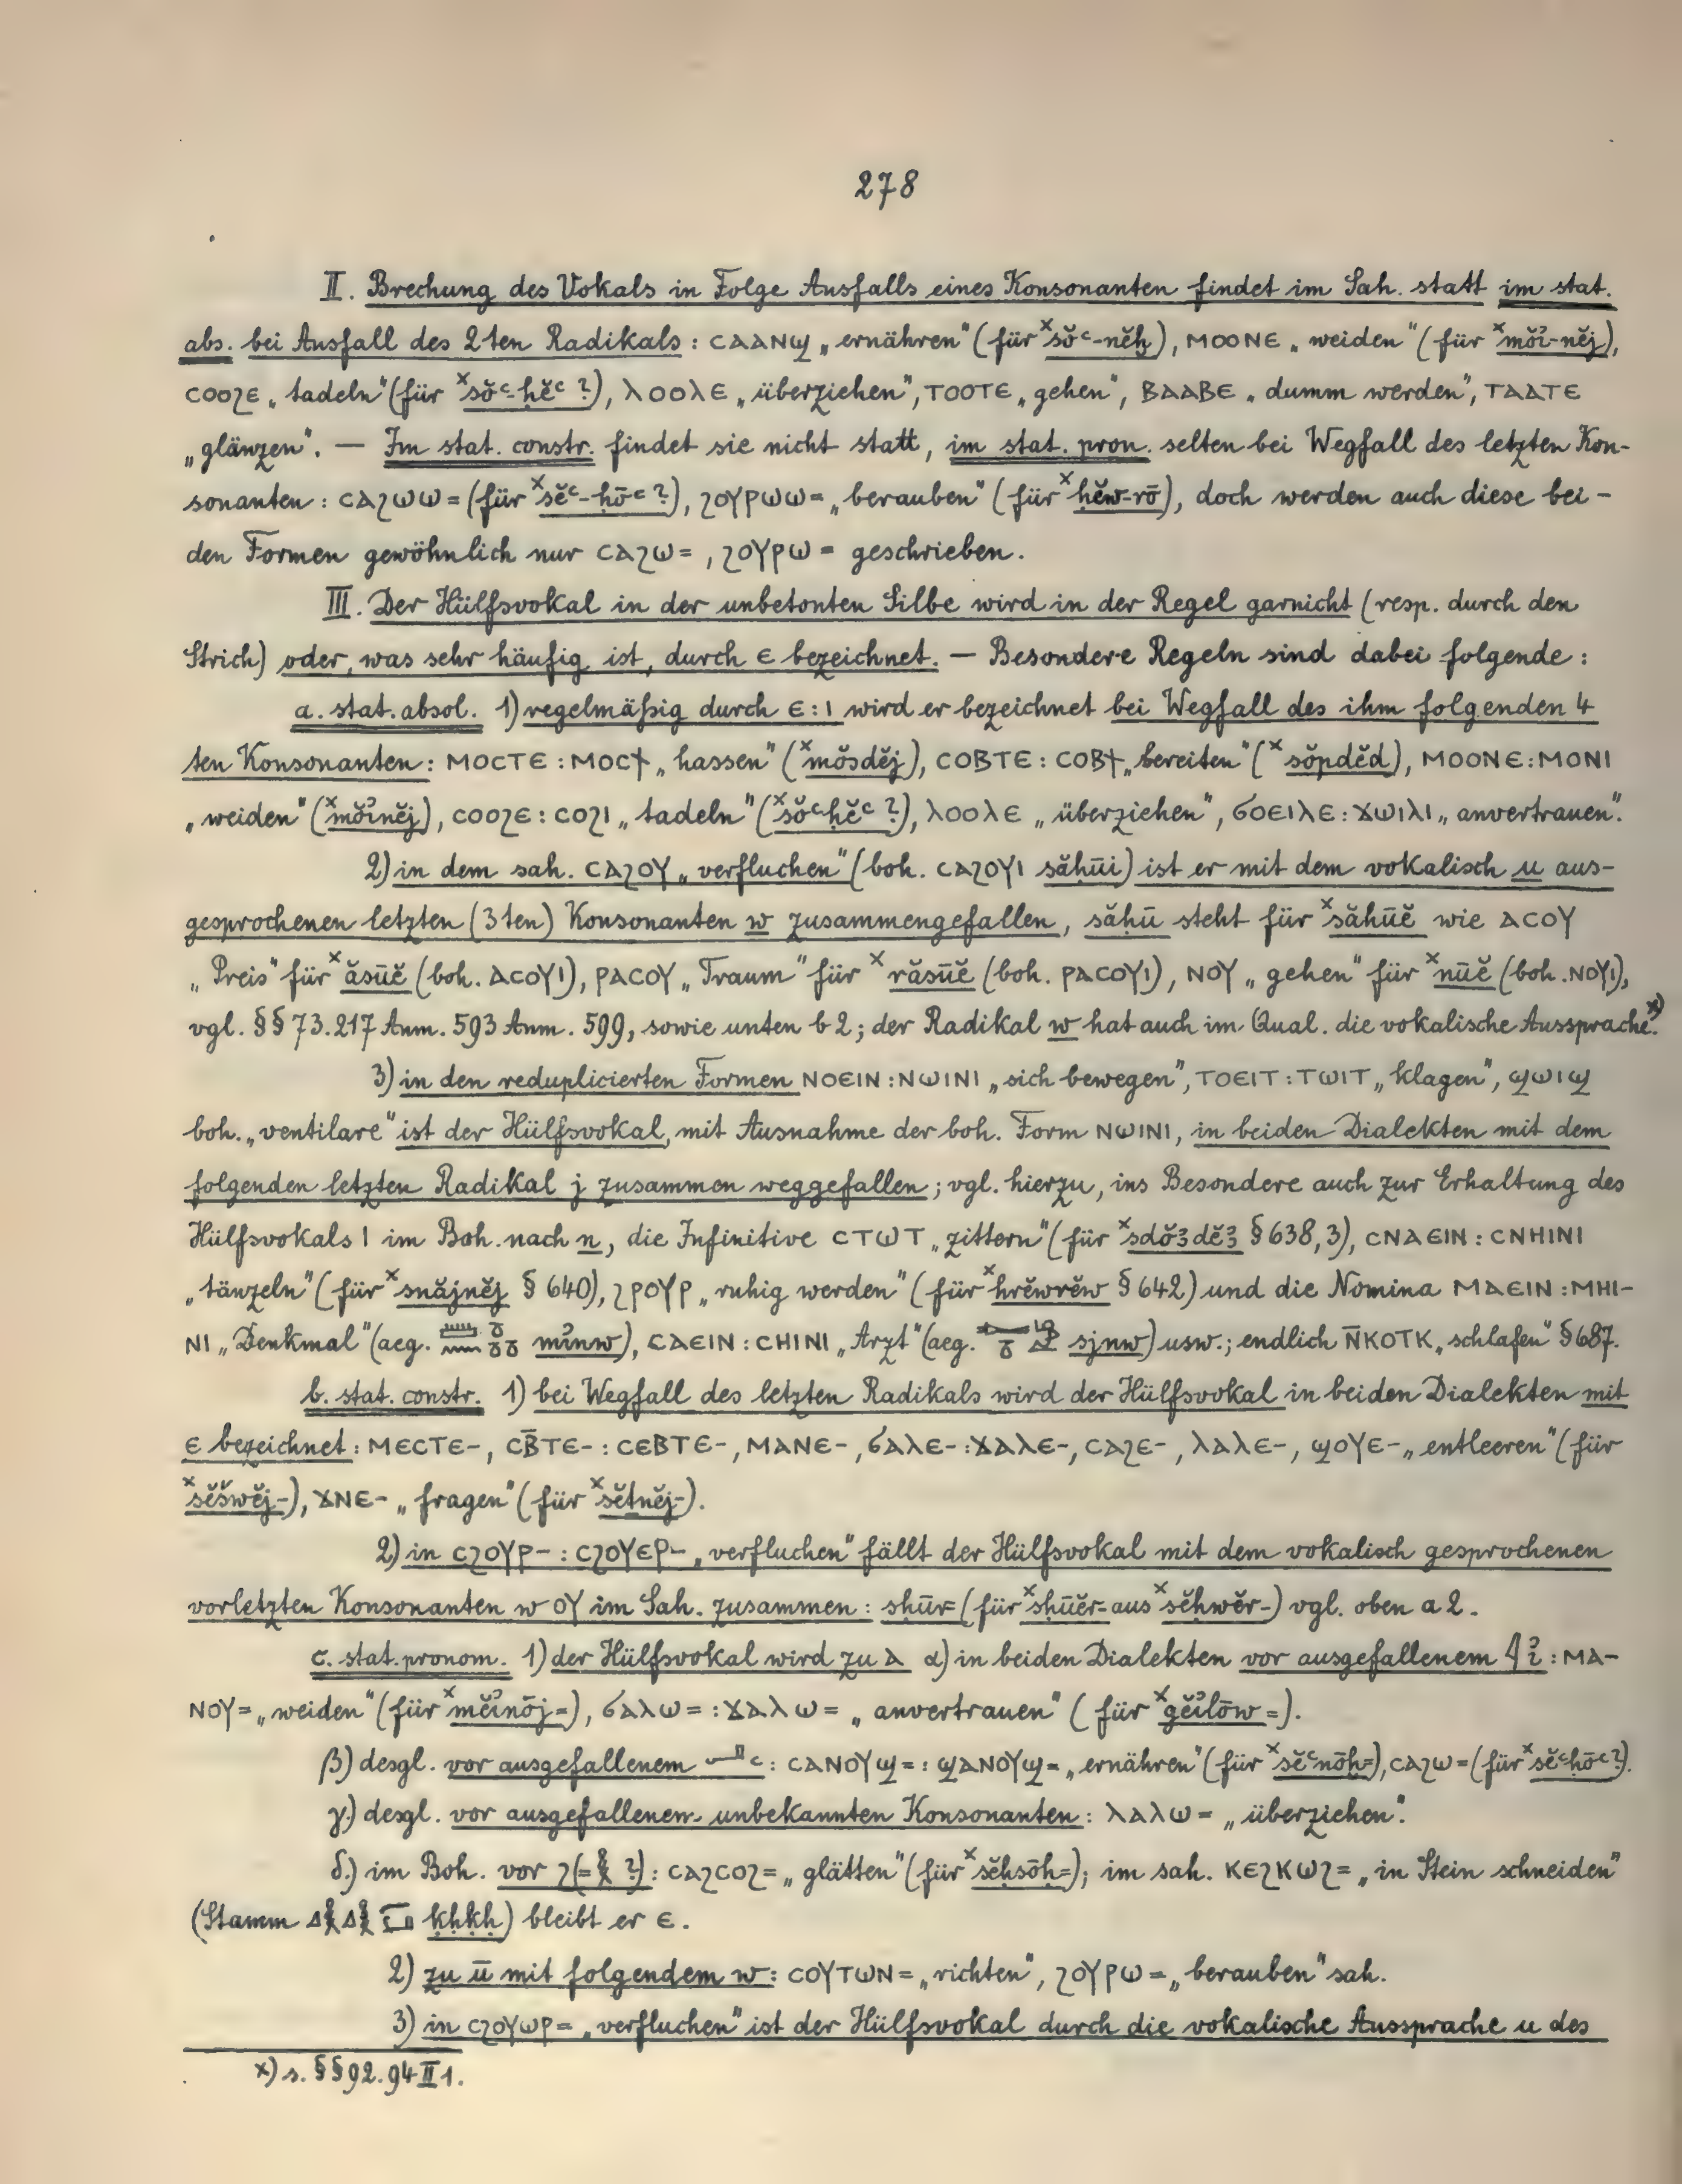 278
II. Brechung des Vokals in Folge Ausfalls eines Konsonanten findet im Sah. statt im stat.
abs. bei Ausfall des 2ten Radikals : ⲤⲀⲀⲚϢ „ernähren" (für ˣsŏꜥ-nĕḫ), ⲘⲞⲞⲚⲈ „weiden" (für ˣmŏꞽ-nĕj),
ⲤⲞⲞϨⲈ „tadeln" (für ˣsŏꜥ-ḥĕꜥ ?), ⲖⲞⲞⲖⲈ „überziehen", ⲦⲞⲞⲦⲈ „gehen", ⲂⲀⲀⲂⲈ „dumm werden", ⲦⲀⲀⲦⲈ
„glänzen". — Im stat. constr. findet sie nicht statt, im stat. pron. selten bei Wegfall des letzten Kon-
sonanten : ⲤⲀϨⲰⲰ= (für ˣsĕꜥ-ḥōꜥ ?), ϨⲞⲨⲢⲰⲰ= „berauben" (für ˣḥĕw-rō), doch werden auch diese bei-
den Formen gewöhnlich nur ⲤⲀϨⲰ= , ϨⲞⲨⲢⲰ= geschrieben.
III. Der Hülfsvokal in der unbetonten Silbe wird in der Regel garnicht (resp. durch den
Strich) oder, was sehr häufig ist, durch ⲉ bezeichnet. — Besondere Regeln sind dabei folgende :
a. stat. absol. 1) regelmäßig durch ⲉ : ⲓ wird er bezeichnet bei Wegfall des ihm folgenden 4
ten Konsonanten : ⲘⲞⲤⲦⲈ : ⲘⲞⲤϮ „hassen" (ˣmŏsdĕj), ⲤⲞⲂⲦⲈ : ⲤⲞⲂϮ „bereiten" (ˣsŏpdĕd), ⲘⲞⲞⲚⲈ : ⲘⲞⲚⲒ
„weiden" (ˣmŏꞽnĕj), ⲤⲞⲞϨⲈ : ⲤⲞϨⲒ „tadeln" (ˣsŏꜥḥĕꜥ ?), ⲖⲞⲞⲖⲈ „überziehen", ϬⲞⲈⲒⲖⲈ : ϪⲰⲒⲖⲒ „anvertrauen".
2) in dem sah. ⲤⲀϨⲞⲨ „verfluchen" (boh. ⲤⲀϨⲞⲨⲒ săḥūi) ist er mit dem vokalisch u aus-
gesprochenen letzten (3ten) Konsonanten w zusammengefallen, săḥū steht für ˣsăḥūĕ wie ⲀⲤⲞⲨ
„Preis" für ˣăsūĕ (boh. ⲀⲤⲞⲨⲒ), ⲢⲀⲤⲞⲨ „Traum" für ˣrăsūĕ (boh. ⲢⲀⲤⲞⲨⲒ), ⲚⲞⲨ „gehen" für ˣnūĕ (boh. ⲚⲞⲨⲒ),
vgl. §§ 73. 217 Anm. 593 Anm. 599, sowie unten b 2; der Radikal w hat auch im Qual. die vokalische Aussprache.ˣ⁾
3) in den reduplicierten Formen ⲚⲞⲈⲒⲚ : ⲚⲰⲒⲚⲒ „sich bewegen", ⲦⲞⲈⲒⲦ : ⲦⲰⲒⲦ „klagen", ϢⲰⲒϢ
boh. „ventilare" ist der Hülfsvokal, mit Ausnahme der boh. Form ⲚⲰⲒⲚⲒ, in beiden Dialekten mit dem
folgenden letzten Radikal j zusammen weggefallen; vgl. hierzu, ins Besondere auch zur Erhaltung des
Hülfsvokals ⲓ im Boh. nach n, die Infinitive ⲤⲦⲰⲦ „zittern" (für ˣsdŏꜣdĕꜣ § 638, 3), ⲤⲚⲀⲈⲒⲚ : ⲤⲚⲎⲒⲚⲒ
„tänzeln" (für ˣsnăjnĕj § 640), ϨⲢⲞⲨⲢ „ruhig werden" (für ˣhrĕwrĕw § 642) und die Nomina ⲘⲀⲈⲒⲚ : ⲘⲎⲒ-
ⲚⲒ „Denkmal" (aeg. mꞽnw), ⲤⲀⲈⲒⲚ : ⲤⲎⲒⲚⲒ „Arzt" (aeg. sjnw) usw.; endlich Ⲛ̄ⲔⲞⲦⲔ „schlafen" § 687.
b. stat. constr. 1) bei Wegfall des letzten Radikals wird der Hülfsvokal in beiden Dialekten mit
ⲉ bezeichnet : ⲘⲈⲤⲦⲈ-, ⲤⲂ̄ⲦⲈ- : ⲤⲈⲂⲦⲈ-, ⲘⲀⲚⲈ-, ϬⲀⲖⲈ- : ϪⲀⲖⲈ-, ⲤⲀϨⲈ-, ⲖⲀⲖⲈ-, ϢⲞⲨⲈ- „entleeren" (für
ˣsĕšwĕj-), ϪⲚⲈ- „fragen" (für ˣsĕṯnĕj-).
2) in ⲤϨⲞⲨⲢ- : ⲤϨⲞⲨⲈⲢ- „verfluchen" fällt der Hülfsvokal mit dem vokalisch gesprochenen
vorletzten Konsonanten w ⲞⲨ im Sah. zusammen : sḥūr- (für ˣsḥūĕr- aus ˣsĕḥwĕr-) vgl. oben a 2.
c. stat. pronom. 1) der Hülfsvokal wird zu ⲁ α) in beiden Dialekten vor ausgefallenem 𓇋 ꞽ : ⲘⲀ-
ⲚⲞⲨ= „weiden" (für ˣmĕꞽnōj=), ϬⲀⲖⲰ= : ϪⲀⲖⲰ= „anvertrauen" (für ˣgĕꞽlōw=).
β) desgl. vor ausgefallenem 𓂝 ꜥ : ⲤⲀⲚⲞⲨϢ= : ϢⲀⲚⲞⲨϢ= „ernähren" (für ˣsĕꜥnōḫ=), ⲤⲀϨⲰ= (für ˣsĕꜥḥōꜥ ?).
γ.) desgl. vor ausgefallenem unbekannten Konsonanten : ⲖⲀⲖⲰ= „überziehen".
δ.) im Boh. vor ϩ (= 𓎛 ?) : ⲤⲀϨⲤⲞϨ= „glätten" (für ˣsĕḥsōḥ=); im sah. ⲔⲈϨⲔⲰϨ= „in Stein schneiden"
(Stamm 𓈎𓎛𓈎𓎛 ḳḥḳḥ) bleibt er ⲉ.
2) zu ū mit folgendem w : ⲤⲞⲨⲦⲰⲚ= „richten", ϨⲞⲨⲢⲰ= „berauben" sah.
3) in ⲤϨⲞⲨⲰⲢ= „verfluchen" ist der Hülfsvokal durch die vokalische Aussprache u des
x) s. §§ 92. 94 II 1.